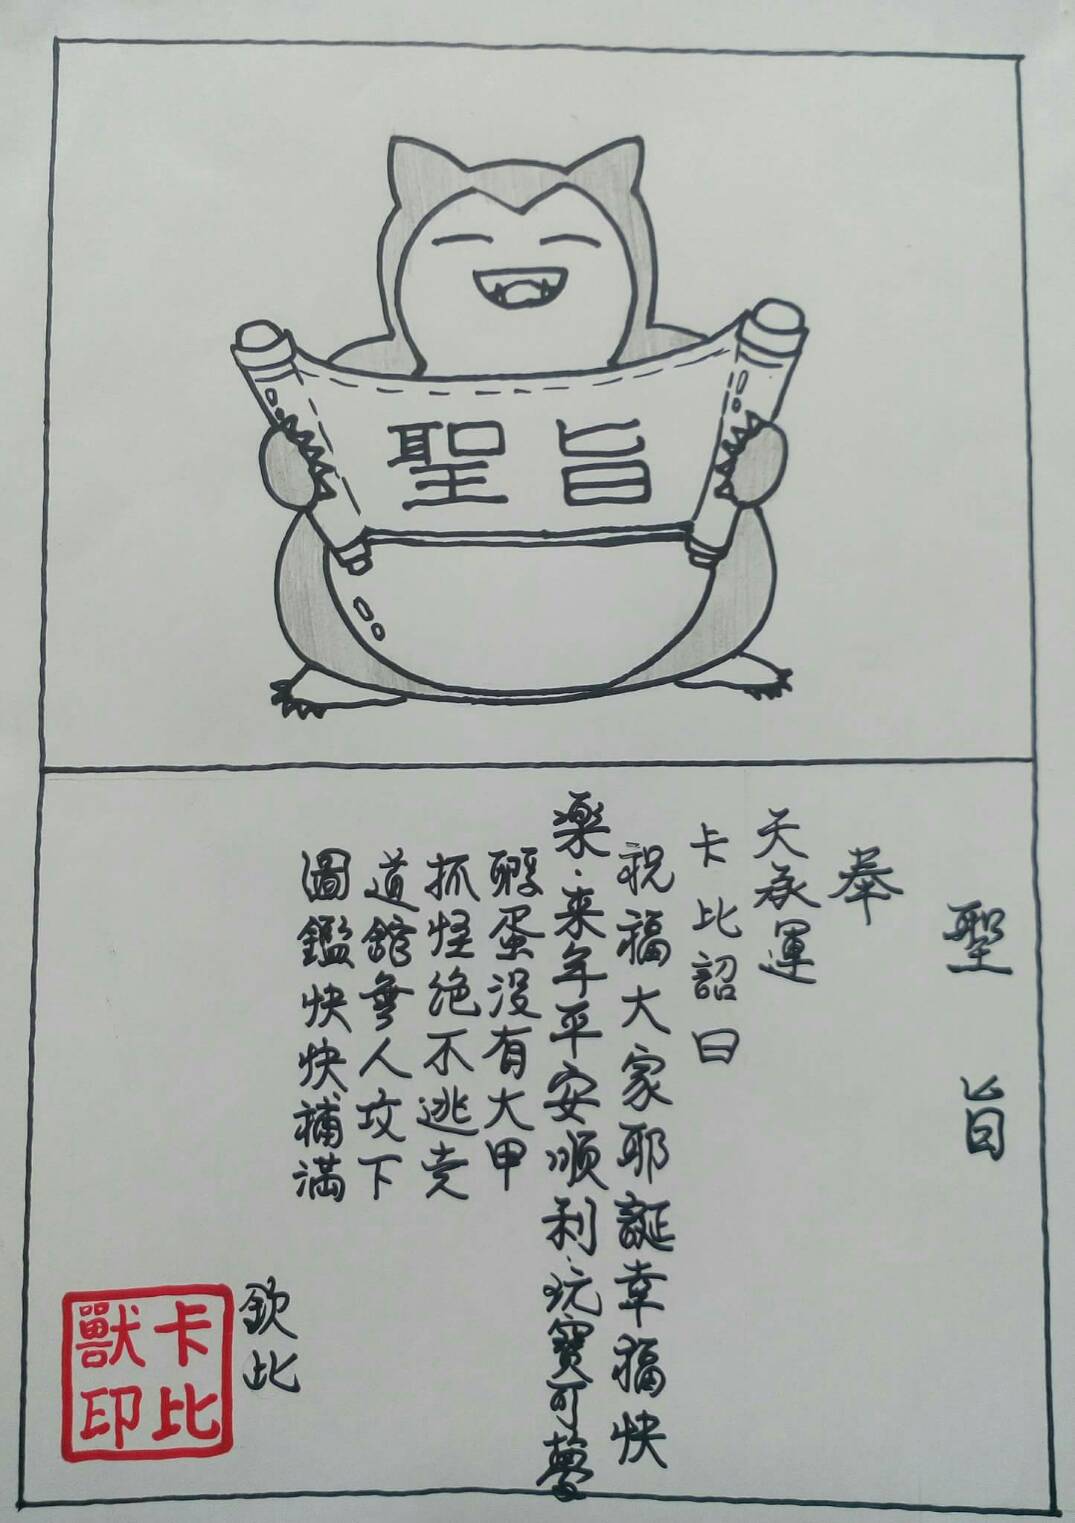 聖旨
聖旨
奉
天承運
卡比詔曰
祝福大家耶誕幸福快
樂.来年平安順利.玩寶可夢
孵蛋沒有大甲
抓怪絕不逃走
道館無人攻下
圖鑑快快補滿
欽比
卡比
獸印